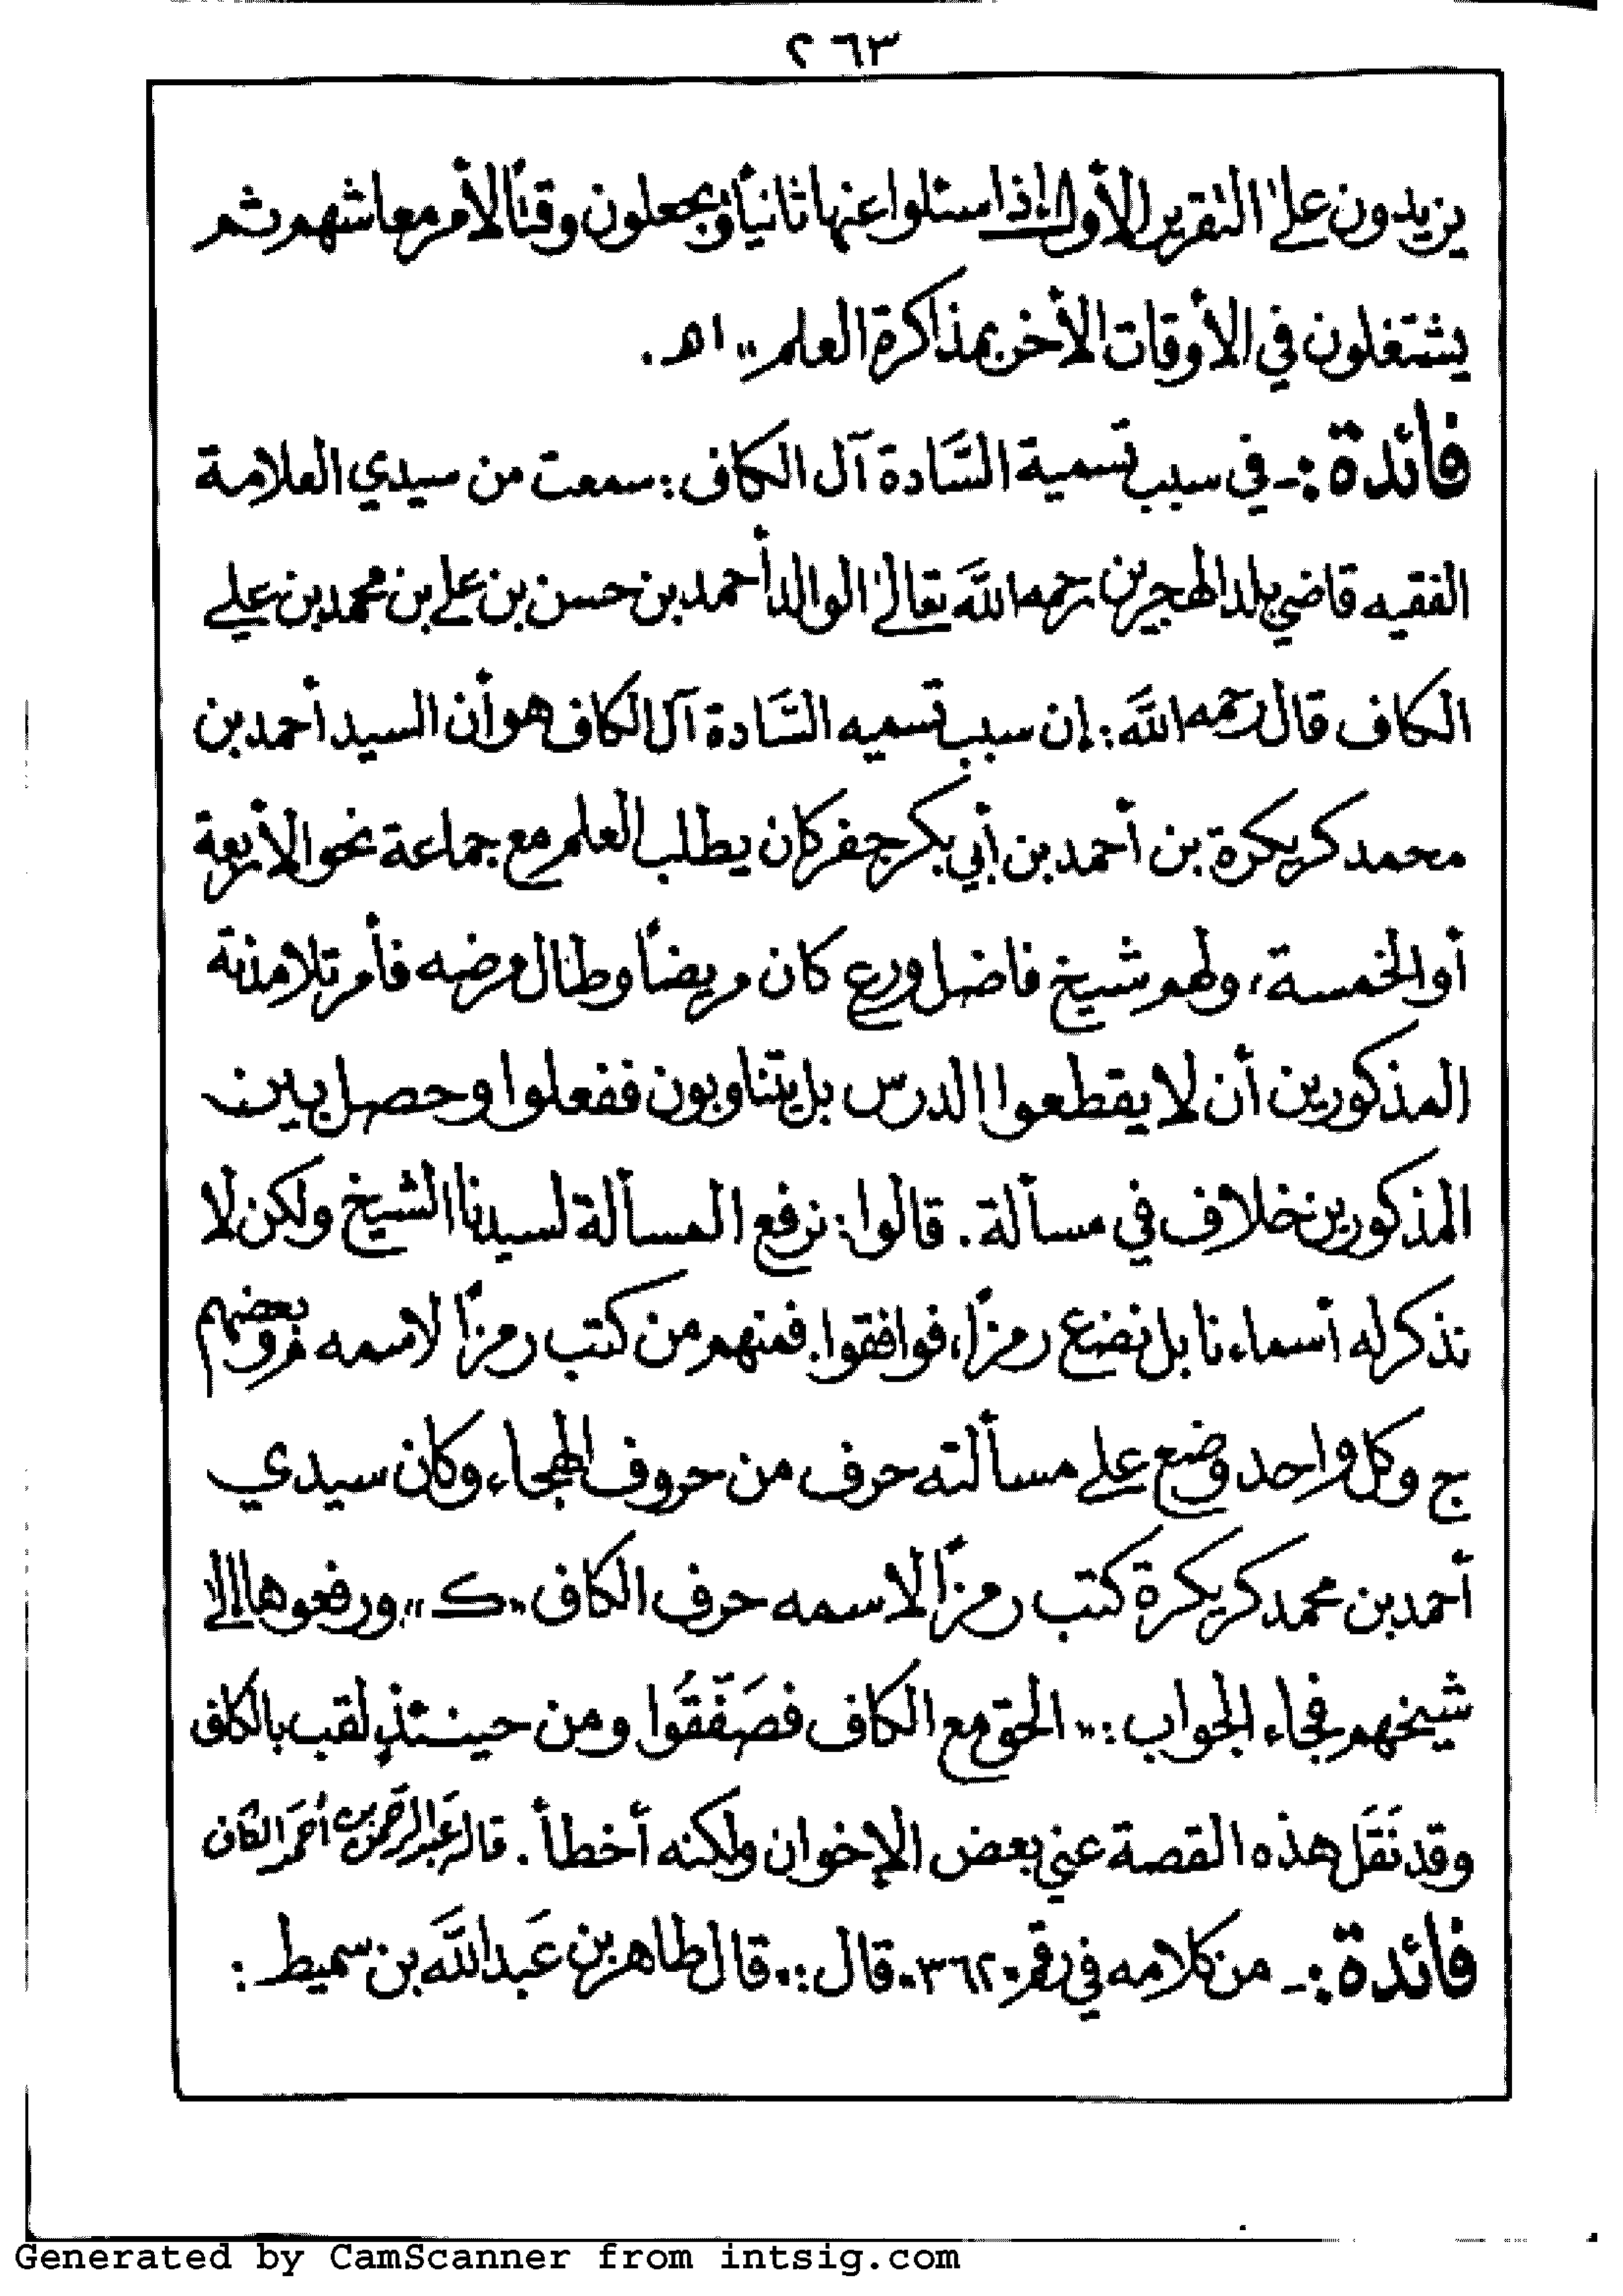 ٢٦٣
يزيدون على التقرير الأول إذا سئلوا عنها ثانياً ويجعلون وقتاً لأمر معاشهم ثم
يشتغلون في الأوقات الأخر بمذاكرة العلم ,, اهـ .
فائدة :ـ في سبب تسمية السَّادة آل الكاف : سمعت من سيدي العلامة
الفقيه قاضي بلد الهجرين رحمه اللَّه تعالى الوالد أحمد بن حسن بن علي بن محمد بن علي
الكاف قال رحمه اللَّه : إن سبب تسميه السَّادة آل الكاف هو أن السيد أحمد بن
محمد كريكرة بن أحمد بن أبي بكر جفر كان يطلب العلم مع جماعة نحو الأربعة
أو الخمسة ، ولهم شيخ فاضل ورع كان مريضاً وطال مرضه فأمر تلامذته
المذكورين أن لا يقطعوا الدرس بل يتناوبون ففعلوا وحصل بين
المذكورين خلاف في مسألة . قالوا : نرفع المسألة لسيدنا الشيخ ولكن لا
نذكر له أسماءنا بل نضع رمزاً ، فوافقوا . فمنهم من كتب رمزاً لاسمه م وبعضهم
ج وكل واحد وضع على مسألته حرف من حروف الهجاء ، وكان سيدي
أحمد بن محمد كريكرة كتب رمزاً لاسمه حرف الكاف ,, ك ,, ورفعوها إلى
شيخهم فجاء الجواب : ,, الحق مع الكاف فصَفَّقُوا ومن حينئذٍ لقب بالكاف
وقد نَقَل هذه القصة عني بعض الإخوان ولكنه أخطأ . قاله عَبد الرَّحمن بن أحمَد الكاف
فائدة :ـ من كلامه في رقم ,, ٣٦٢ ,, قال : ,, قال طاهر بن عَبد اللَّه بن سميط :
Generated by CamScanner from intsig.com